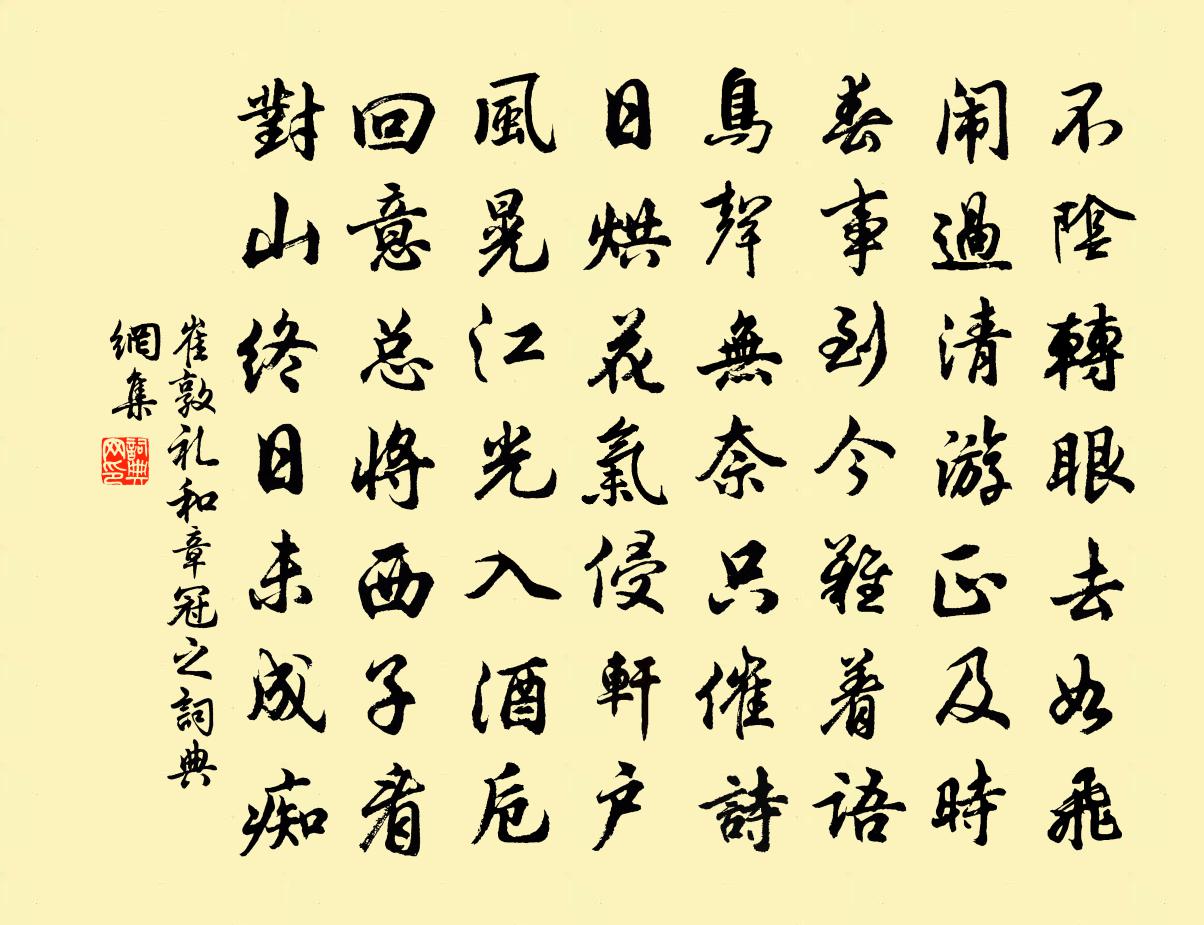 不陰轉眼去如飛
闹過清游正及時
春事到今難着語
鳥聲無奈只催詩
日烘花氣侵軒户
風晃江光入酒卮
回意总將西子看
對山終日未成痴
崔敦礼和章冠之詞典
網集
詞典网印